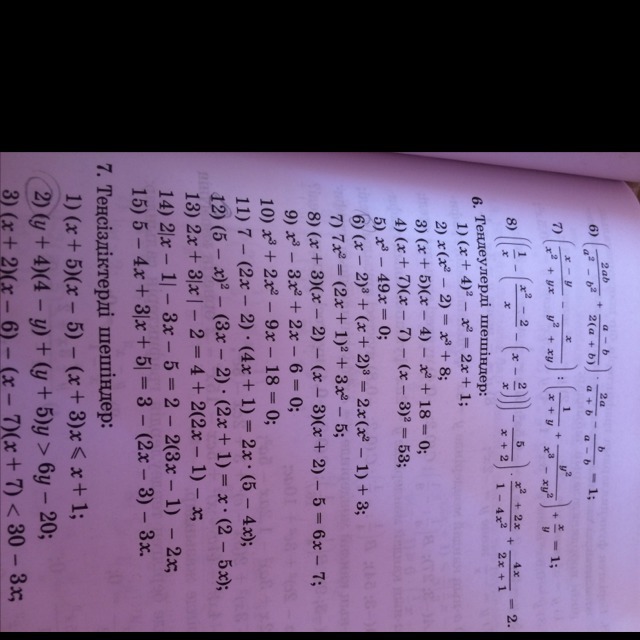 6) (2ab/(a² − b²) + (a − b)/(2(a + b))) · 2a/(a + b) · b/(a − b) = 1;
7) ((x − y)/(x² + yx) − x/(y² + xy)) : (1/(x + y) + y²/(x³ − xy²)) · x/y = 1;
6. Теңдеулерді шешіңдер:
1) (x + 4)² − x² = 2x + 1;
2) x(x² − 2) = x³ + 8;
3) (x + 5)(x − 4) − x² + 18 = 0;
4) (x + 7)(x − 7) − (x − 3)² = 58;
5) x³ − 49x = 0;
6) (x − 2)³ + (x + 2)³ = 2x(x² − 1) + 3;
7) 7x² = (2x + 1)² + 3x² − 5;
8) (x + 3)(x − 2) − (x − 3)(x + 2) − 5 = 6x − 7;
9) x³ − 3x² + 2x − 6 = 0;
10) x³ + 2x² − 9x − 18 = 0;
11) 7 − (2x − 2) · (4x + 1) = 2x · (5 − 4x);
12) (5 − x)² − (3x − 2) · (2x + 1) = x · (2 − 5x);
13) 2x + 3|x| − 2 = 4 + 2(2x − 1) − x;
14) 2|x − 1| − 3x − 5 = 2 − 2(3x − 1) − 2x;
15) 5 − 4x + 3|x + 5| = 3 − (2x − 3) − 3x.
7. Теңсіздіктерді шешіңдер:
1) (x + 5)(x − 5) − (x + 3)x ⩽ x + 1;
2) (y + 4)(4 − y) + (y + 5)y > 6y − 20;
3) (x + 2)(x − 6) − (x − 7)(x + 7) < 30 − 3x;